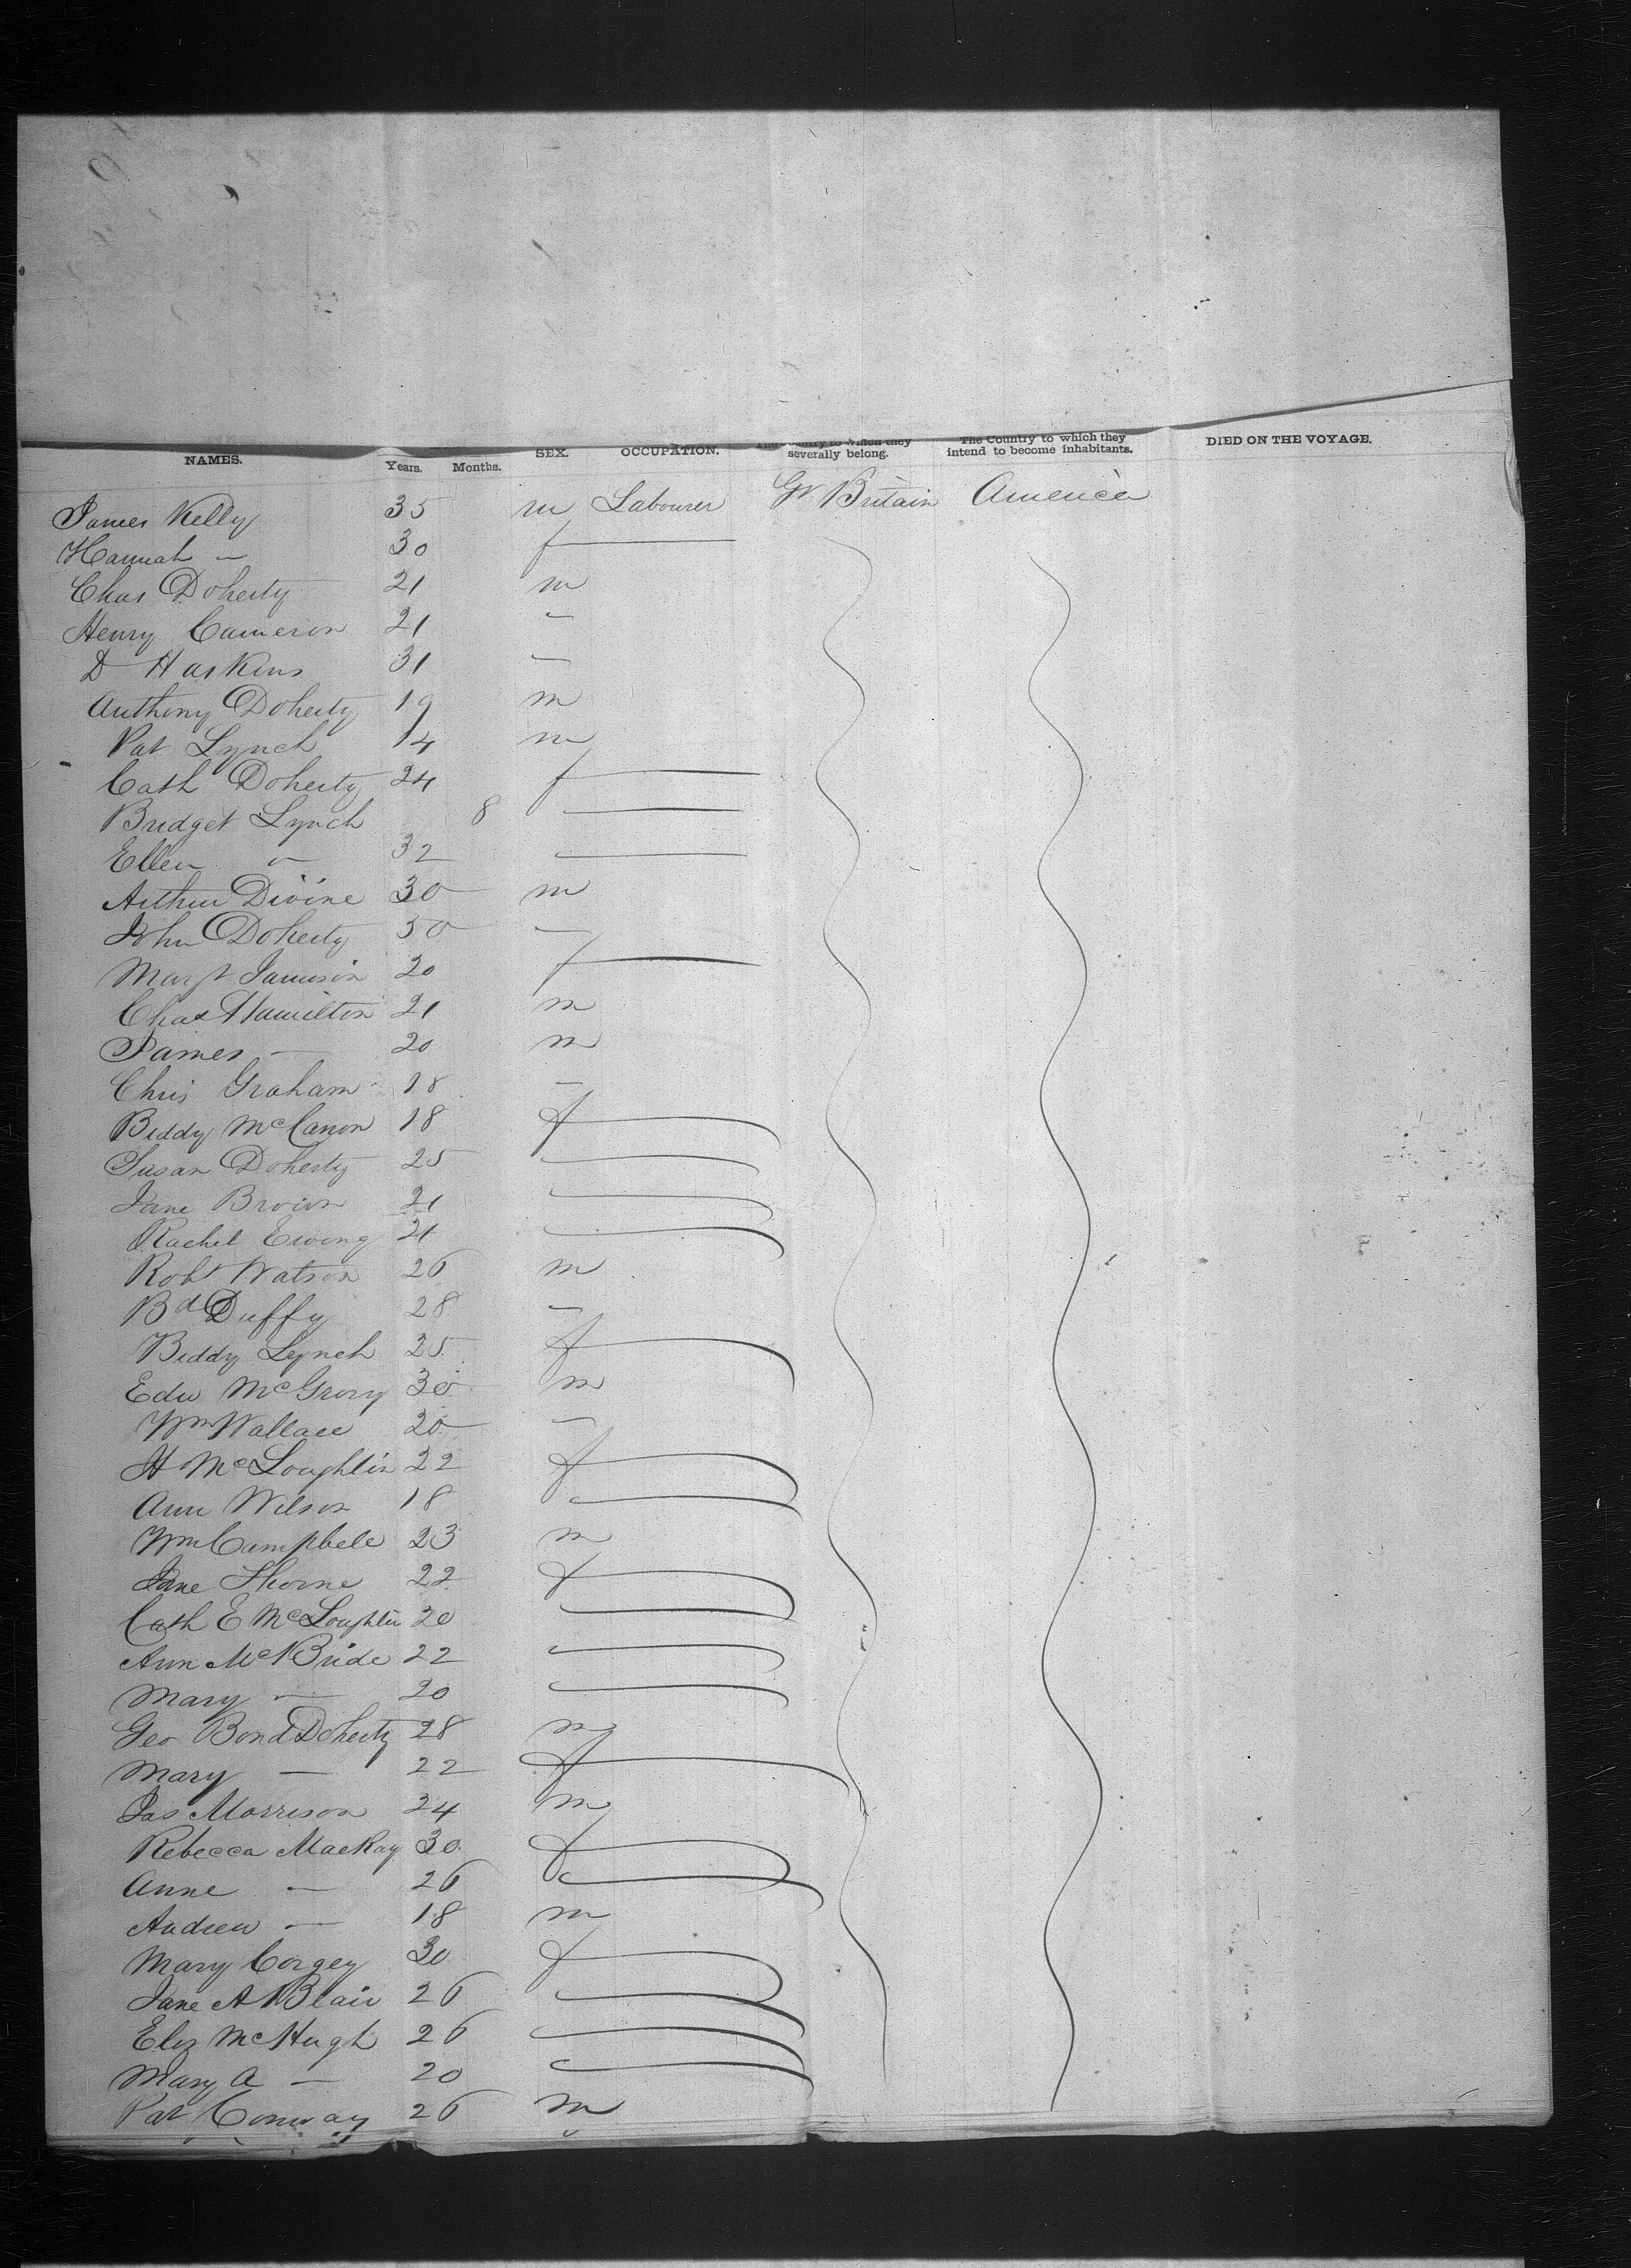 NAMES. Years. Months. SEX. OCCUPATION. severally belong. The Country to which they intend to become inhabitants. DIED ON THE VOYAGE.
James Kelly 35 m Labourer Gt Britain America
Hannah — 30 f
Chas Doherty 21 m
Henry Cameron 21 —
D Haskins 31 —
Anthony Doherty 19 m
Pat Lynch 14 m
Cath Doherty 24 f
Bridget Lynch 8 —
Ellen — 32 —
Arthur Divine 30 m
John Doherty 50 —
Margt Jamison 20 f
Chas Hamilton 21 m
James — 20 m
Chris Graham 18 —
Biddy McCanon 18 f
Susan Doherty 25 —
Jane Brown 21 —
Rachel Ewing 21 —
Robt Watson 26 m
Bd Duffy 28 —
Biddy Lynch 25 f
Edw McGrory 30 m
Wm Wallace 20 —
H McLoughlin 22 f
Ann Wilson 18 —
Wm Campbell 23 m
Jane Thorne 22 f
Cath E McLoughlin 20 —
Ann McBride 22 —
Mary — 20 —
Geo Bond Doherty 28 m
Mary — 22 f
Jas Morrison 24 m
Rebecca MacKay 30 f
Anne — 26 —
Andrew — 18 m
Mary Corgey 30 f
Jane A Blair 26 —
Eliz McHugh 26 —
Mary A — 20 —
Pat Conway 26 m